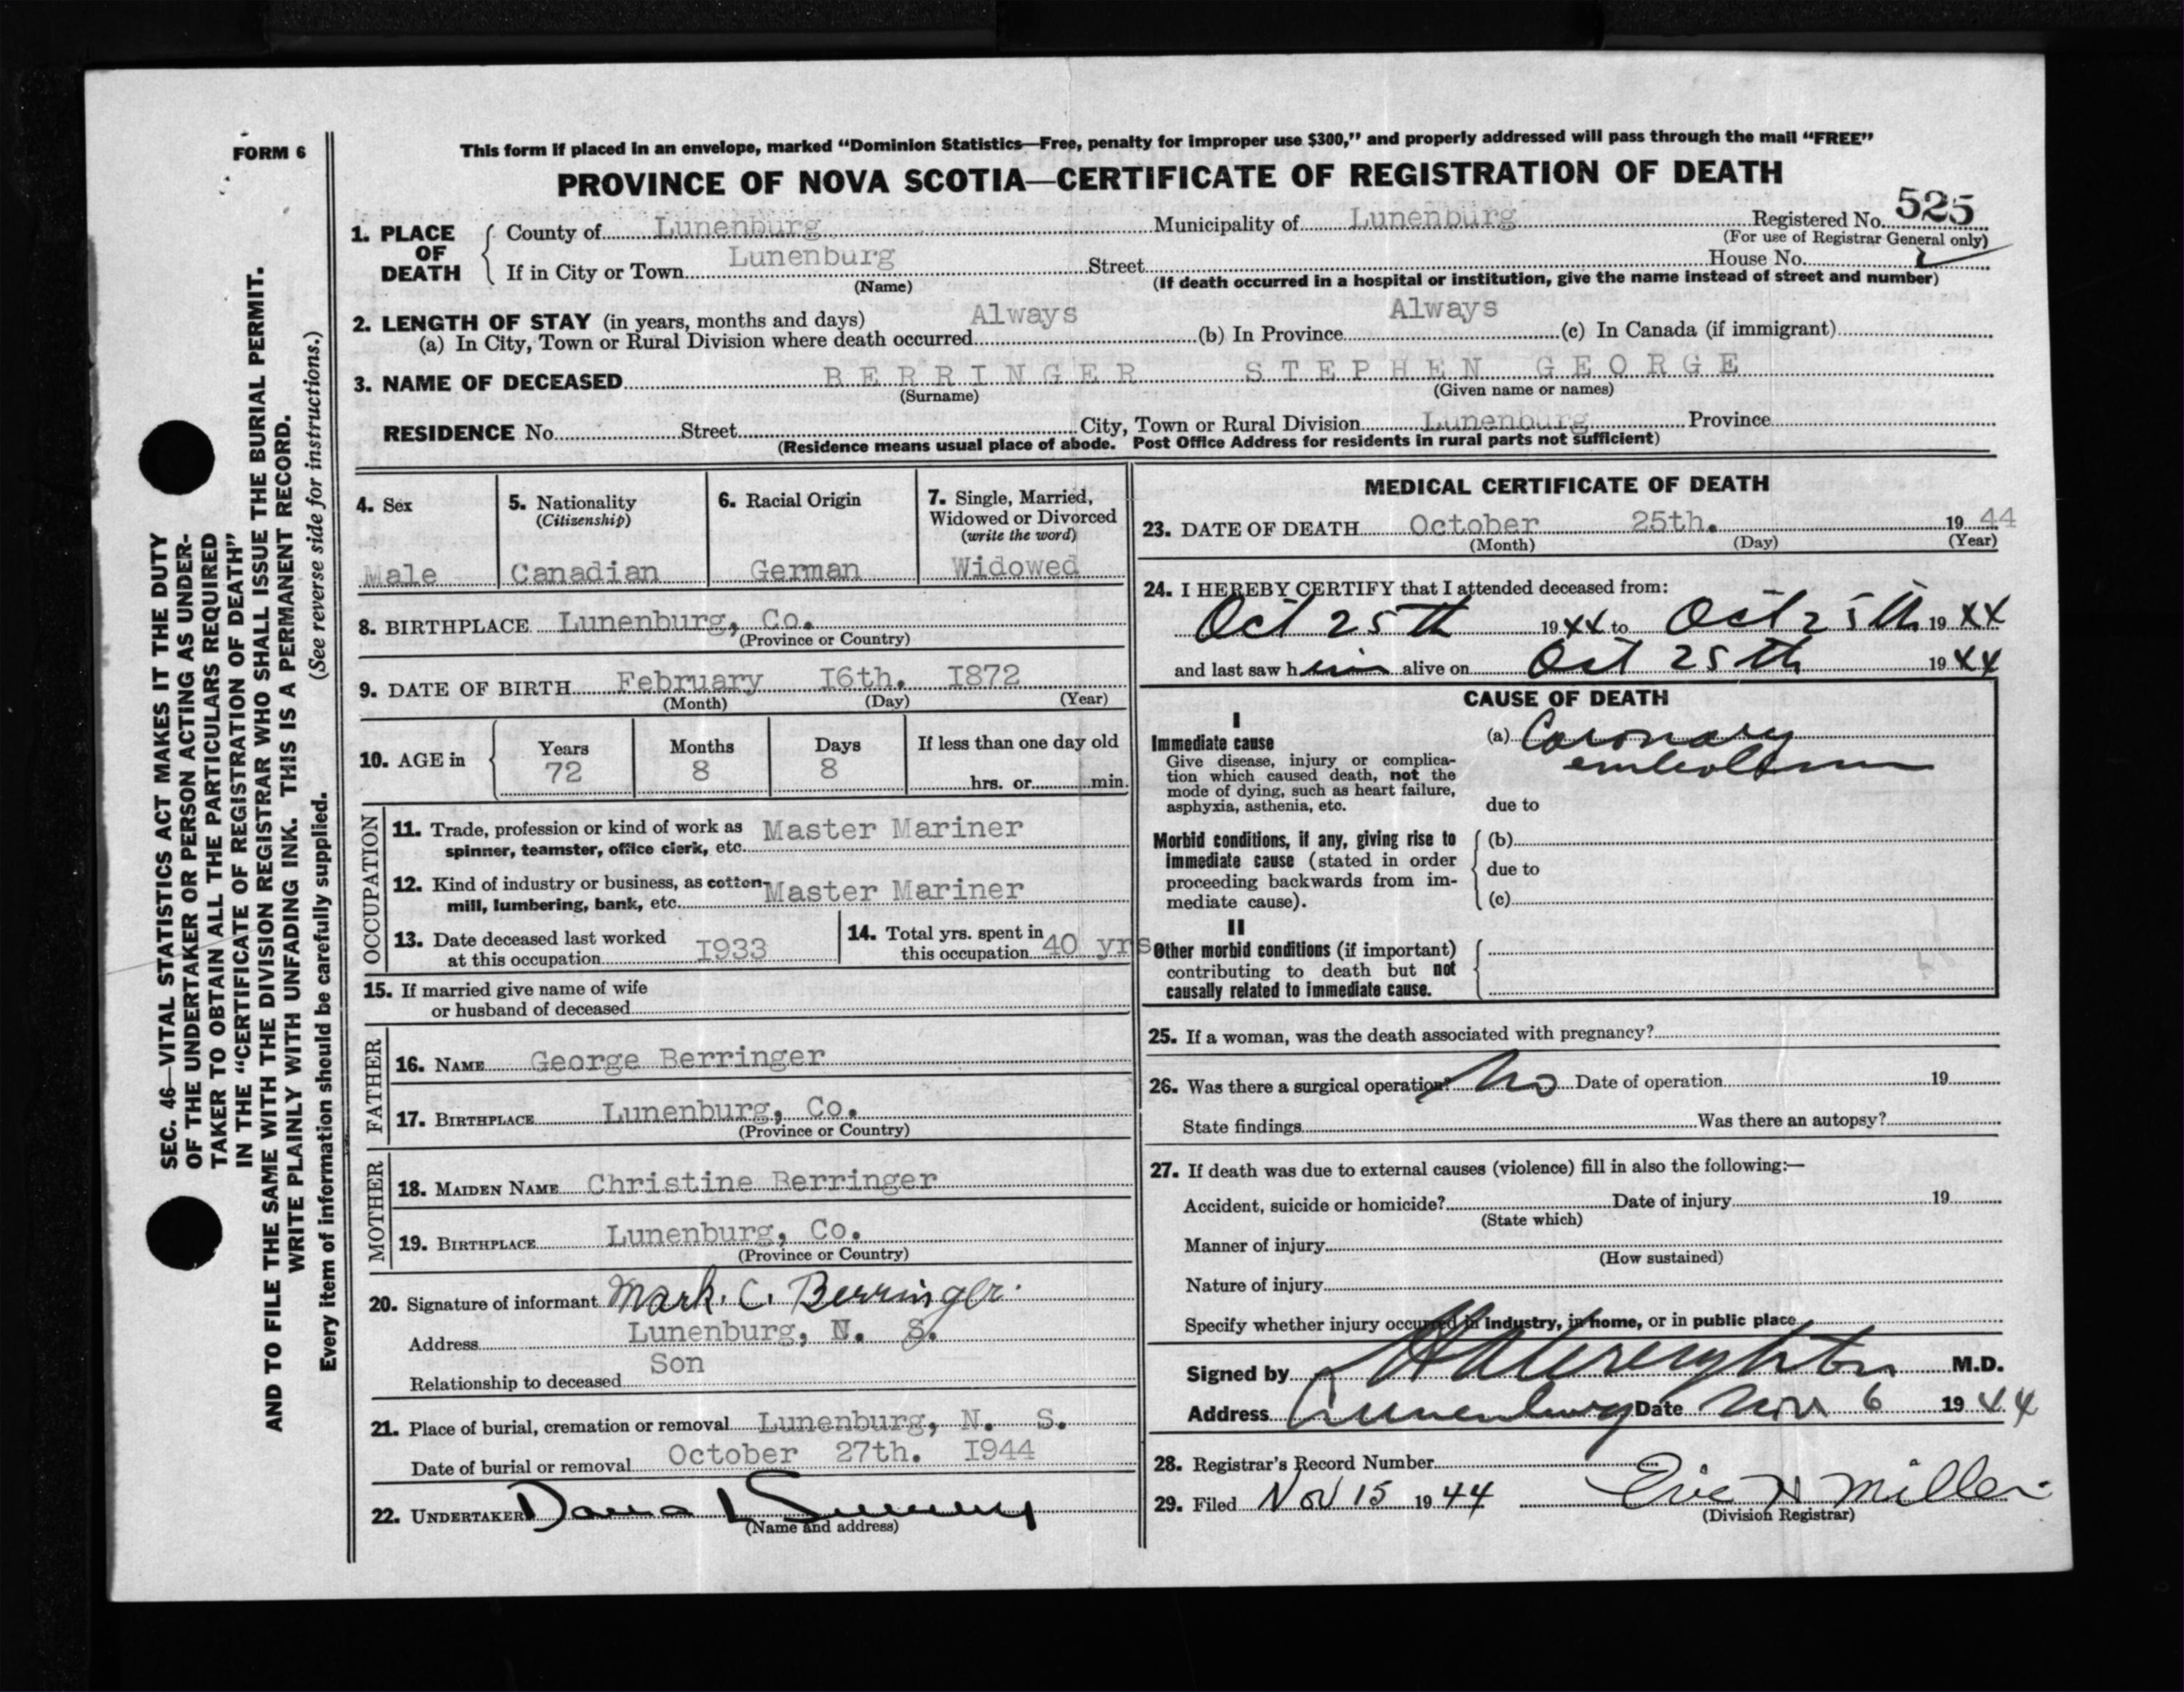 FORM 6
This form if placed in an envelope, marked "Dominion Statistics—Free, penalty for improper use $300," and properly addressed will pass through the mail "FREE"
PROVINCE OF NOVA SCOTIA—CERTIFICATE OF REGISTRATION OF DEATH
1. PLACE OF DEATH
County of Lunenburg Municipality of Lunenburg Registered No. 525
(For use of Registrar General only)
If in City or Town Lunenburg Street House No.
(Name) (If death occurred in a hospital or institution, give the name instead of street and number)
2. LENGTH OF STAY (in years, months and days)
(a) In City, Town or Rural Division where death occurred Always (b) In Province Always (c) In Canada (if immigrant)
3. NAME OF DECEASED BERRINGER STEPHEN GEORGE
(Surname) (Given name or names)
RESIDENCE No. Street City, Town or Rural Division Lunenburg Province
(Residence means usual place of abode. Post Office Address for residents in rural parts not sufficient)
SEC. 46—VITAL STATISTICS ACT MAKES IT THE DUTY
OF THE UNDERTAKER OR PERSON ACTING AS UNDER-
TAKER TO OBTAIN ALL THE PARTICULARS REQUIRED
IN THE "CERTIFICATE OF REGISTRATION OF DEATH"
AND TO FILE THE SAME WITH THE DIVISION REGISTRAR WHO SHALL ISSUE THE BURIAL PERMIT.
WRITE PLAINLY WITH UNFADING INK. THIS IS A PERMANENT RECORD.
Every item of information should be carefully supplied. (See reverse side for instructions.)
4. Sex
Male
5. Nationality
(Citizenship)
Canadian
6. Racial Origin
German
7. Single, Married,
Widowed or Divorced
(write the word)
Widowed
8. BIRTHPLACE Lunenburg, Co.
(Province or Country)
9. DATE OF BIRTH February I6th. I872
(Month) (Day) (Year)
10. AGE in
Years Months Days If less than one day old
72 8 8 hrs. or min.
OCCUPATION
11. Trade, profession or kind of work as
spinner, teamster, office clerk, etc. Master Mariner
12. Kind of industry or business, as cotton-
mill, lumbering, bank, etc. Master Mariner
13. Date deceased last worked
at this occupation I933
14. Total yrs. spent in
this occupation 40 yrs
15. If married give name of wife
or husband of deceased
FATHER
16. NAME George Berringer
17. BIRTHPLACE Lunenburg, Co.
(Province or Country)
MOTHER
18. MAIDEN NAME Christine Berringer
19. BIRTHPLACE Lunenburg, Co.
(Province or Country)
20. Signature of informant Mark. C. Berringer.
Address Lunenburg, N. S.
Relationship to deceased Son
21. Place of burial, cremation or removal Lunenburg, N. S.
Date of burial or removal October 27th. I944
22. UNDERTAKER
(Name and address)
MEDICAL CERTIFICATE OF DEATH
23. DATE OF DEATH October 25th. 19 44
(Month) (Day) (Year)
24. I HEREBY CERTIFY that I attended deceased from:
Oct 25th 19 44 to Oct 25th 19 44
and last saw h im alive on Oct 25th 19 44
CAUSE OF DEATH
I
Immediate cause
Give disease, injury or complica-
tion which caused death, not the
mode of dying, such as heart failure,
asphyxia, asthenia, etc.
(a) Coronary
embolism
due to
Morbid conditions, if any, giving rise to
immediate cause (stated in order
proceeding backwards from im-
mediate cause).
(b)
due to
(c)
II
Other morbid conditions (if important)
contributing to death but not
causally related to immediate cause.
25. If a woman, was the death associated with pregnancy?
26. Was there a surgical operation? No Date of operation 19
State findings Was there an autopsy?
27. If death was due to external causes (violence) fill in also the following:—
Accident, suicide or homicide? Date of injury 19
(State which)
Manner of injury
(How sustained)
Nature of injury
Specify whether injury occurred in industry, in home, or in public place
Signed by M.D.
Address Lunenburg Date Nov 6 19 44
28. Registrar's Record Number
29. Filed Nov 15 19 44 Eric H Miller
(Division Registrar)